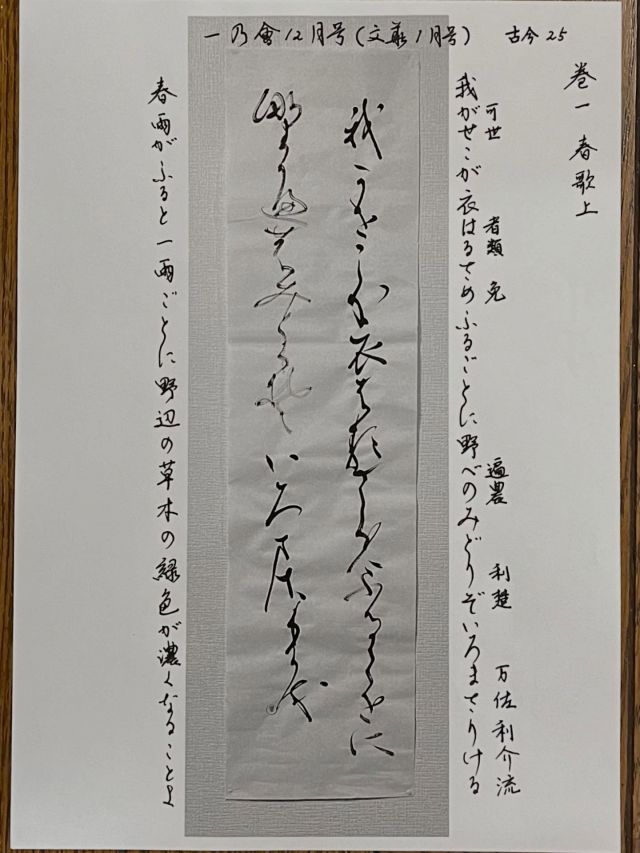 一乃會12月号(文蔵1月号) 古今25
巻一 春歌上
可世 者類 免 遍農 利楚 万佐利介流
我がせこが衣はるさめふるごとに野べのみどりぞいろまさりける
我可世こ可衣者類さ免ふることに
野遍農みとり楚いろ万佐利介流
春雨がふると一雨ごとに野辺の草木の緑色が濃くなることよ